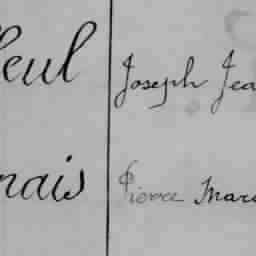 eul Joseph Jea
nais Pierre Marc